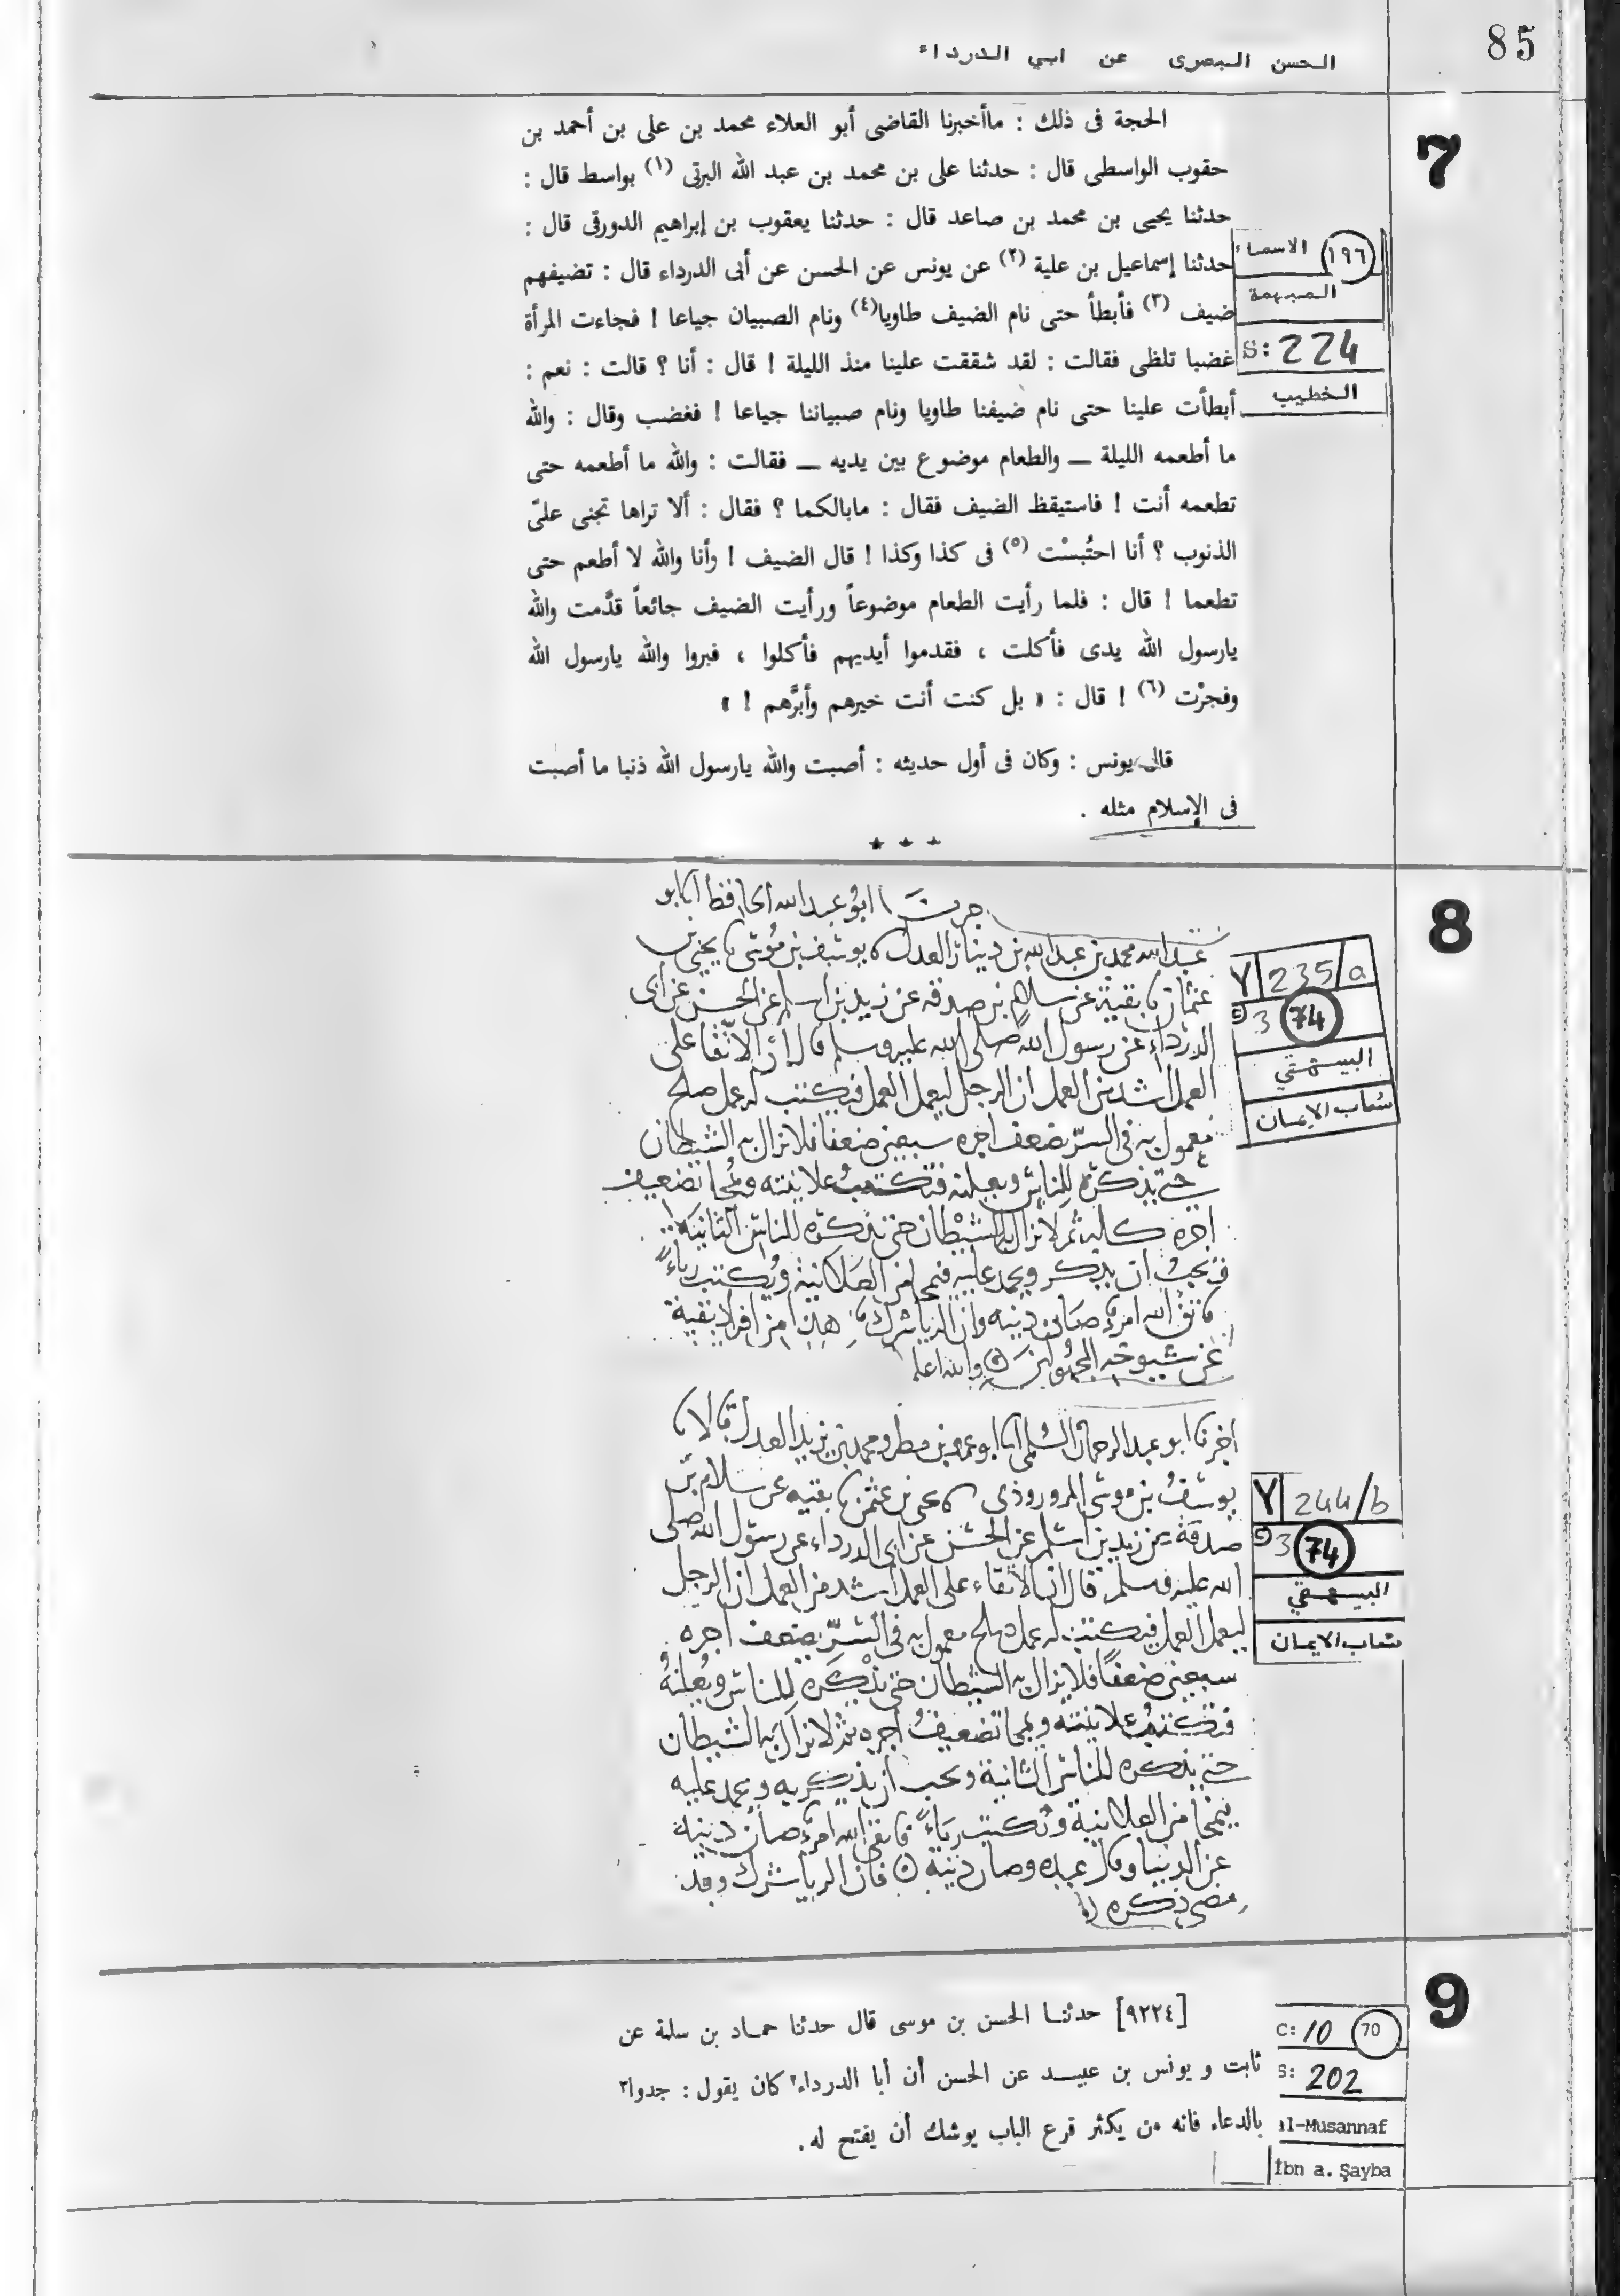 85
الحسن البصرى عن ابي الدرداء
7
الحجة فى ذلك : ماأخبرنا القاضى أبو العلاء محمد بن على بن أحمد بن
حقوب الواسطى قال : حدثنا على بن محمد بن عبد الله البرتى (١) بواسط قال :
حدثنا يحيى بن محمد بن صاعد قال : حدثنا يعقوب بن إبراهيم الدورقى قال :
حدثنا إسماعيل بن علية (٢) عن يونس عن الحسن عن أبى الدرداء قال : تضيفهم
ضيف (٣) فأبطأ حتى نام الضيف طاويا(٤) ونام الصبيان جياعا ! فجاءت المرأة
غضبا تلظى فقالت : لقد شققت علينا منذ الليلة ! قال : أنا ؟ قالت : نعم :
أبطأت علينا حتى نام ضيفنا طاويا ونام صبياننا جياعا ! فغضب وقال : والله
ما أطعمه الليلة ــ والطعام موضوع بين يديه ــ فقالت : والله ما أطعمه حتى
تطعمه أنت ! فاستيقظ الضيف فقال : مابالكما ؟ فقال : ألا تراها تجنى علىّ
الذنوب ؟ أنا احتُبسْت (٥) فى كذا وكذا ! قال الضيف ! وأنا والله لا أطعم حتى
تطعما ! قال : فلما رأيت الطعام موضوعاً ورأيت الضيف جائعاً قدَّمت والله
يارسول الله يدى فأكلت ، فقدموا أيديهم فأكلوا ، فبروا والله يارسول الله
وفجرْت (٦) ! قال : « بل كنت أنت خيرهم وأبرَّهم ! »
قال يونس : وكان فى أول حديثه : أصبت والله يارسول الله ذنبا ما أصبت
فى الإسلام مثله .
* * *
الاسماء ١٩٦
المبهمة
S: 224
الخطيب
8
ابو عبد الله الحافظ انا ابو
عبد الله محمد بن عبد الله بن دينار العدل نا يوسف بن موسى نا يحيى بن
عثمان نا بقية عن سلام بن صدقه عن زيد بن اسلم عن الحسن عن ابى
الدرداء عن رسول الله صلى الله عليه وسلم قال إن الاتقا على
العمل اشد من العمل ان الرجل ليعمل العمل فيكتب له عمل صلح
معمول به فى السرّ يضعف اجره سبعين ضعفا فلا يزال به الشيطان
حتى يذكره للناس ويعلنه فتكتب علانيته ويمحا تضعيف
اجره كله ثم لا يزال به الشيطان حتى يذكره للناس الثانيه
فيحب ان يذكر ويحمد عليه فيمحا من العلانية ويكتب رياءً
فاتقى الله امرؤ صان دينه وان الريا شرك هذا من افراد بقية
عن شيوخه المجهولين والله اعلم
Y 235/a
3 74
البيهقي
شعاب الايمان
اخبرنا ابو عبد الرحمان السلمى انا ابو عمرو بن مطر ومحمد بن يزيد العدل قالا نا
يوسف بن موسى المروروذى نا يحيى بن عثمن نا بقيه عن سلام بن
صدقة عن زيد بن اسلم عن الحسن عن ابى الدرداء عن رسول الله صلى
الله عليه وسلم قال ان الاتقاء على العمل اشد من العمل ان الرجل
ليعمل العمل فيكتب له عمل صلح معمول به فى السرّ يضعف اجره
سبعين ضعفاً فلا يزال به الشيطان حتى يذكره للناس ويعلنه
فتكتب علانيته ويمحا تضعيف اجره ثم لا يزال به الشيطان
حتى يذكره للناس الثانية ويحب ان يذكر به ويحمد عليه
فيمحا من العلانية وتكتب رياءً فاتقى الله امرؤ صان دينه
عن الدنيا وقال عبده وصان دينه فان الريا شرك وقد
مضى ذكره
Y 244/b
3 74
البيهقي
شعاب الايمان
9
[٩٢٢٤] حدثنـا الحسن بن موسى قال حدثنا حمـاد بن سلمة عن
ثابت و يونس بن عبيـد عن الحسن أن أبا الدرداء٢ كان يقول : جدوا٣
بالدعاء فانه من يكثر قرع الباب يوشك أن يفتح له .
C: 10 70
S: 202
al-Musannaf
İbn a. Şayba